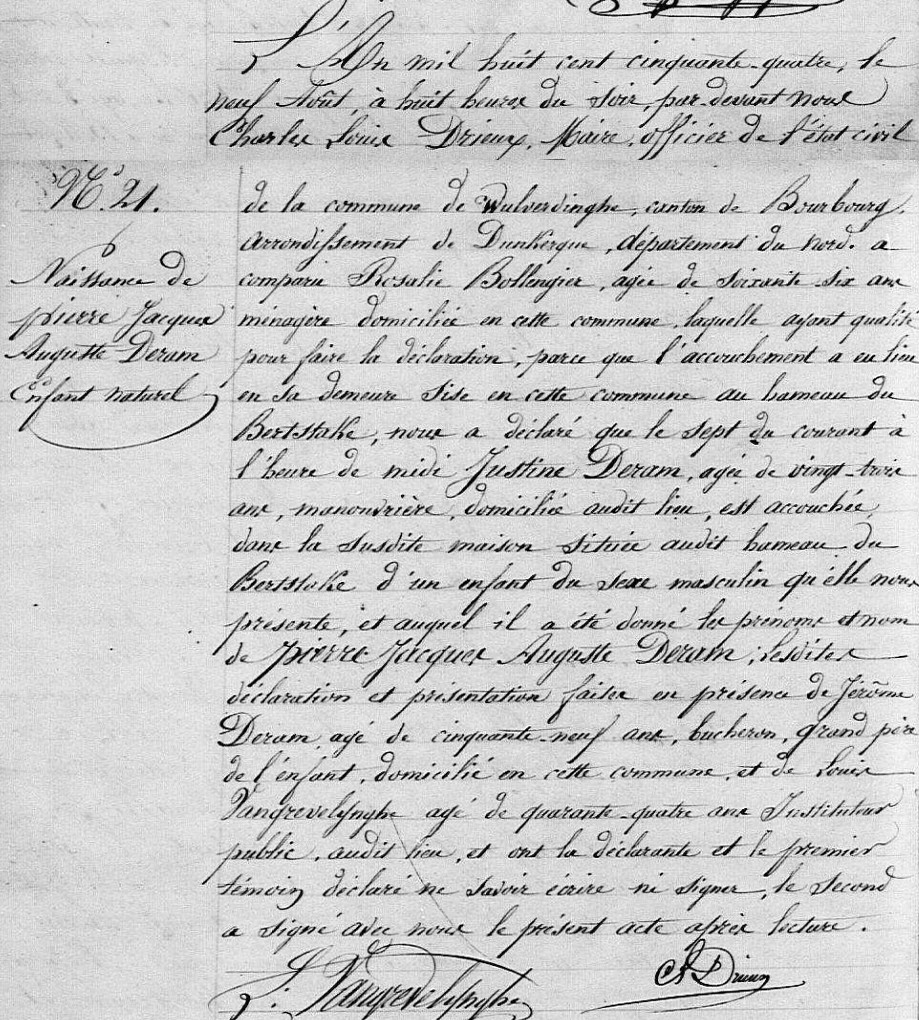 L'An mil huit cent cinquante-quatre, le
neuf Août, à huit heures du soir, par-devant nous
Charles Louis Drieux, Maire, officier de l'état civil
N° 21.
Naissance de
pierre Jacques
Auguste Deram
Enfant naturel
de la commune de Wulverdinghe, canton de Bourbourg,
arrondissement de Dunkerque, département du nord. a
comparu Rosalie Bollengier, agée de soixante-six ans
ménagère domiciliée en cette commune, laquelle ayant qualité
pour faire la déclaration, parce que l'accouchement a eu lieu
en sa demeure sise en cette commune au hameau du
Bertstake, nous a déclaré que le sept du courant à
l'heure de midi Justine Deram, agée de vingt-trois
ans, manouvrière, domiciliée audit lieu, est accouchée,
dans la susdite maison située audit hameau du
Bertstake d'un enfant du sexe masculin qu'elle nous
présente, et auquel il a été donné les prénoms et nom
de pierre Jacques Auguste Deram, lesdites
déclaration et présentation faites en présence de Jérôme
Deram, agé de cinquante-neuf ans, bucheron, grand père
de l'enfant, domicilié en cette commune, et de Louis
Vangrevelynghe agé de quarante-quatre ans Instituteur
public, audit lieu, et ont la déclarante et le premier
témoin déclaré ne savoir écrire ni signer, le second
a signé avec nous le présent acte après lecture.
L. Vangrevelynghe
Drieux